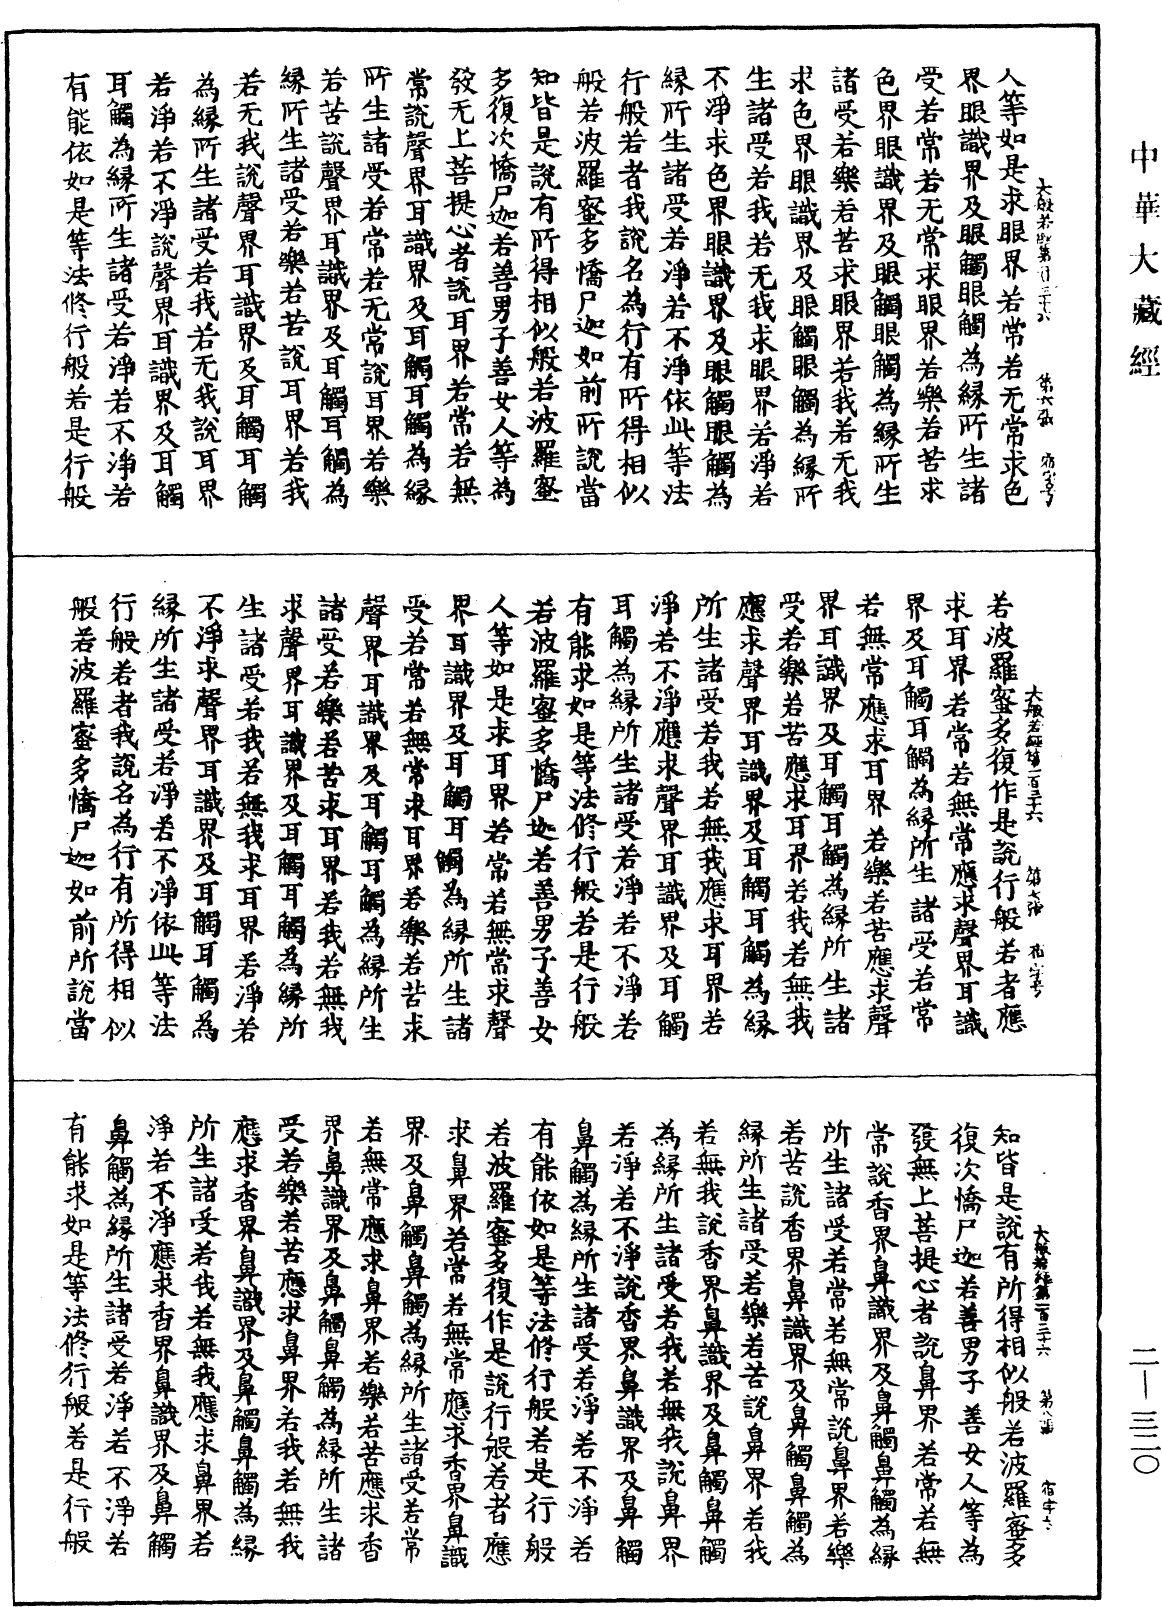 中華大藏經
人等如是求眼界若常若无常求色
界眼識界及眼觸眼觸為緣所生諸
受若常若无常求眼界若樂若苦求
色界眼識界及眼觸眼觸為緣所生
諸受若樂若苦求眼界若我若无我
求色界眼識界及眼觸眼觸為緣所
生諸受若我若无我求眼界若淨若
不淨求色界眼識界及眼觸眼觸為
緣所生諸受若淨若不淨依此等法
行般若者我說名為行有所得相似
般若波羅蜜多憍尸迦如前所說當
知皆是說有所得相似般若波羅蜜
多復次憍尸迦若善男子善女人等為
發无上菩提心者說耳界若常若無
常說聲界耳識界及耳觸耳觸為緣
所生諸受若常若无常說耳界若樂
若苦說聲界耳識界及耳觸耳觸為
緣所生諸受若樂若苦說耳界若我
若无我說聲界耳識界及耳觸耳觸
為緣所生諸受若我若无我說耳界
若淨若不淨說聲界耳識界及耳觸
耳觸為緣所生諸受若淨若不淨若
有能依如是等法修行般若是行般
大般若經第一百三十六 第七張 宿字号
若波羅蜜多復作是說行般若者應
求耳界若常若無常應求聲界耳識
界及耳觸耳觸為緣所生諸受若常
若無常應求耳界若樂若苦應求聲
界耳識界及耳觸耳觸為緣所生諸
受若樂若苦應求耳界若我若無我
應求聲界耳識界及耳觸耳觸為緣
所生諸受若我若無我應求耳界若
淨若不淨應求聲界耳識界及耳觸
耳觸為緣所生諸受若淨若不淨若
有能求如是等法修行般若是行般
若波羅蜜多憍尸迦若善男子善女
人等如是求耳界若常若無常求聲
界耳識界及耳觸耳觸為緣所生諸
受若常若無常求耳界若樂若苦求
聲界耳識界及耳觸耳觸為緣所生
諸受若樂若苦求耳界若我若無我
求聲界耳識界及耳觸耳觸為緣所
生諸受若我若無我求耳界若淨若
不淨求聲界耳識界及耳觸耳觸為
緣所生諸受若淨若不淨依此等法
行般若者我說名為行有所得相似
般若波羅蜜多憍尸迦如前所說當
大般若經第一百三十六 第八張
知皆是說有所得相似般若波羅蜜多
復次憍尸迦若善男子善女人等為
發無上菩提心者說鼻界若常若無
常說香界鼻識界及鼻觸鼻觸為緣
所生諸受若常若無常說鼻界若樂
若苦說香界鼻識界及鼻觸鼻觸為
緣所生諸受若樂若苦說鼻界若我
若無我說香界鼻識界及鼻觸鼻觸
為緣所生諸受若我若無我說鼻界
若淨若不淨說香界鼻識界及鼻觸
鼻觸為緣所生諸受若淨若不淨若
有能依如是等法修行般若是行般
若波羅蜜多復作是說行般若者應
求鼻界若常若無常應求香界鼻識
界及鼻觸鼻觸為緣所生諸受若常
若無常應求鼻界若樂若苦應求香
界鼻識界及鼻觸鼻觸為緣所生諸
受若樂若苦應求鼻界若我若無我
應求香界鼻識界及鼻觸鼻觸為緣
所生諸受若我若無我應求鼻界若
淨若不淨應求香界鼻識界及鼻觸
鼻觸為緣所生諸受若淨若不淨若
有能求如是等法修行般若是行般
二—三二〇